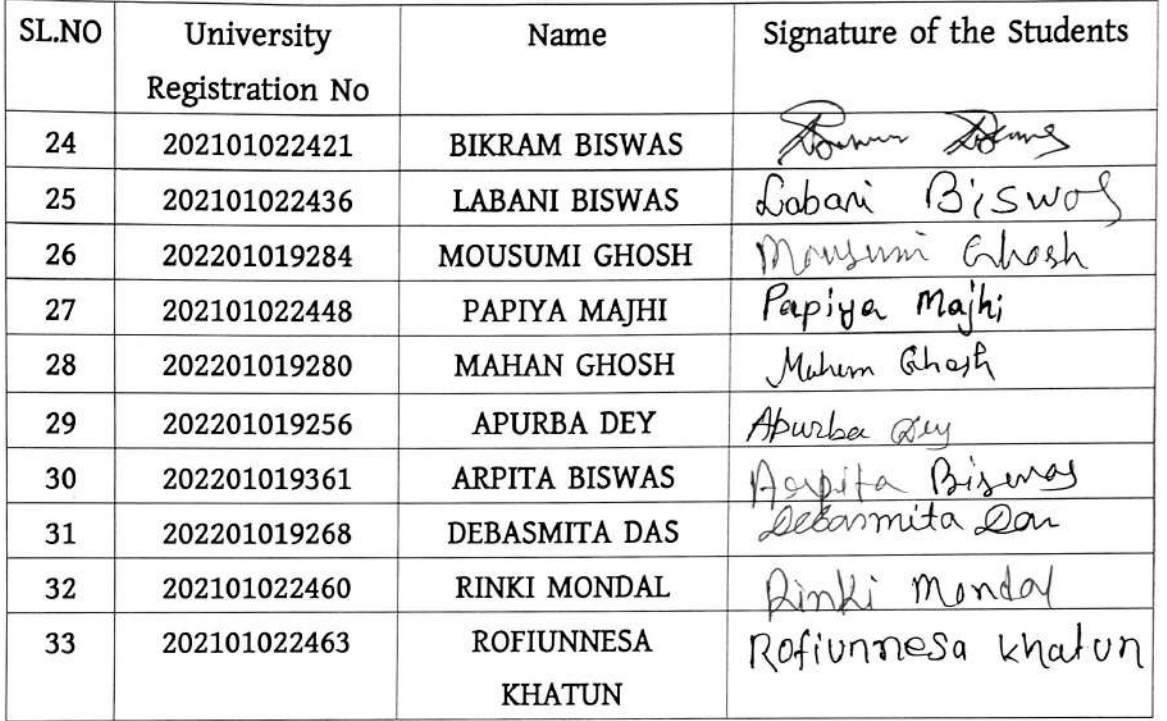 SL.NO University Registration No Name Signature of the Students
24 202101022421 BIKRAM BISWAS
25 202101022436 LABANI BISWAS Labani Biswas
26 202201019284 MOUSUMI GHOSH Mousumi Ghosh
27 202101022448 PAPIYA MAJHI Papiya Majhi
28 202201019280 MAHAN GHOSH Mahan Ghosh
29 202201019256 APURBA DEY Apurba Dey
30 202201019361 ARPITA BISWAS Arpita Biswas
31 202201019268 DEBASMITA DAS Debasmita Das
32 202101022460 RINKI MONDAL Rinki Mondal
33 202101022463 ROFIUNNESA Rofiunnesa Khatun
KHATUN